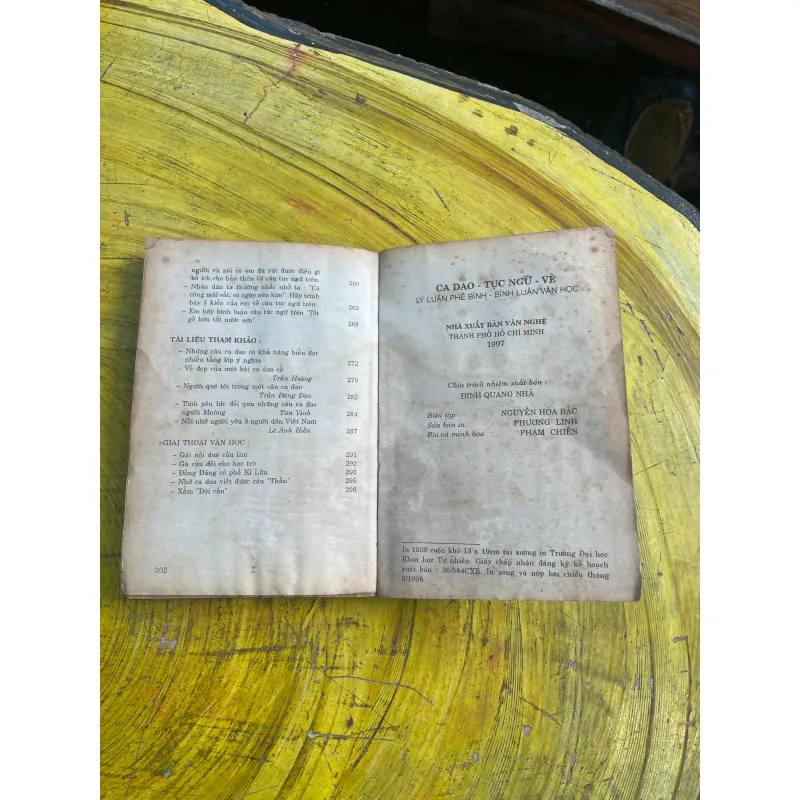 người và nói rõ em đã rút được điều gì
bổ ích cho bản thân từ câu tục ngữ trên. 260
– Nhân dân ta thường nhắc nhở ta : "Có
công mài sắt, có ngày nên kim". Hãy trình
bày ý kiến của em về câu tục ngữ trên. 263
– Em hãy bình luận câu tục ngữ trên "Tốt
gỗ hơn tốt nước sơn" 268
TÀI LIỆU THAM KHẢO :
– Những câu ca dao có khả năng biểu đạt
nhiều tầng lớp ý nghĩa 272
– Vẻ đẹp của một bài ca dao cổ
Trần Hoàng 279
– Người quê tôi trong một câu ca dao
Trần Đăng Dân 282
– Tình yêu lức đôi qua những câu ca dao
người Mnông Tân Vinh 284
– Nỗi nhớ người yêu ở người dân Việt Nam
Lê Anh Hiền 287
GIAI THOẠI VĂN HỌC :
– Gái nội duê cầu lim 291
– Gà câu đối cho học trò 292
– Đồng Đăng có phố Kì Lừa 293
– Nhờ ca dao viết được câu "Thần" 295
– Xẩm "Đội cấn" 296
302
CA DAO - TỤC NGỮ - VÈ
LÝ LUẬN PHÊ BÌNH - BÌNH LUẬN VĂN HỌC
NHÀ XUẤT BẢN VĂN NGHỆ
THÀNH PHỐ HỒ CHÍ MINH
1997
Chịu trách nhiệm xuất bản :
ĐINH QUANG NHÃ
Biên tập : NGUYỄN HÒA BẮC
Sửa bản in : PHƯƠNG LINH
Bìa và minh họa : PHẠM CHIẾN
In 1500 cuốn khổ 13 x 19cm tại xưởng in Trường Đại học
Khoa học Tự nhiên. Giấy chấp nhận đăng ký kế hoạch
xuất bản : 36/584CXB. In xong và nộp lưu chiểu tháng
3/1998.